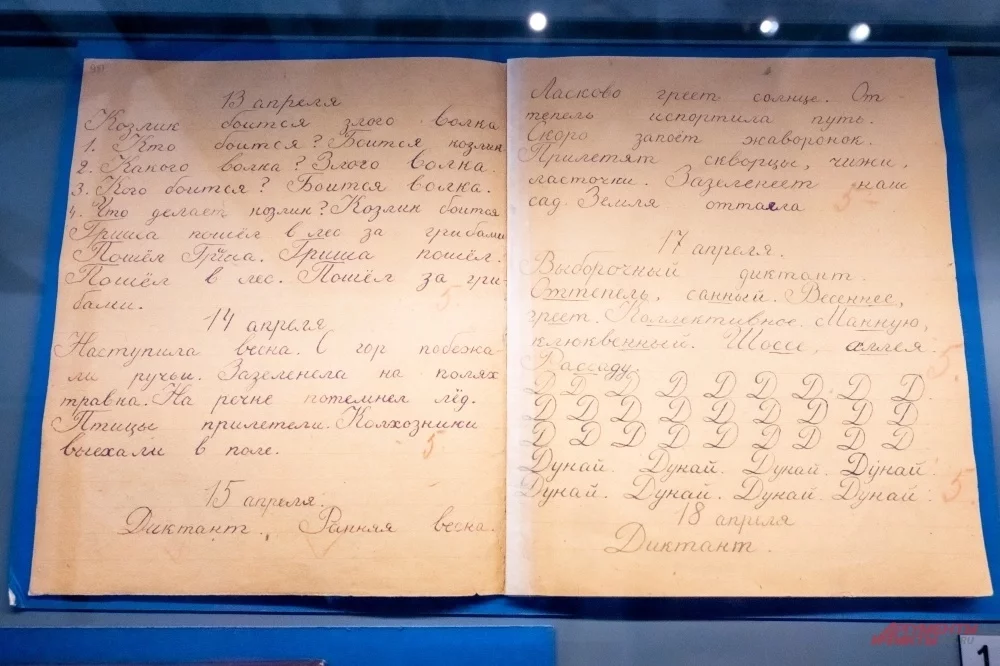 13 апреля
Козлик боится злого волка
1. Кто боится? Боится козлик
2. Какого волка? Злого волка.
3. Кого боится? Боится волка.
4. Что делает козлик? Козлик боится
Гриша пошёл в лес за грибами
Пошёл Гриша. Гриша пошёл.
Пошёл в лес. Пошёл за гри-
бами.
5
14 апреля
Наступила весна. С гор побежа-
ли ручьи. Зазеленела на полях
травка. На речке потемнел лёд.
Птицы прилетели. Колхозники
выехали в поле.
5
15 апреля.
Диктант. Ранняя весна.
Ласково греет солнце. От
тепель испортила путь.
Скоро запоёт жаворонок.
Прилетят скворцы, чижи,
ласточки. Зазеленеет наш
сад. Земля оттаяла
5-
17 апреля.
Выборочный диктант.
Оттепель, санный. Весеннее,
греет. Коллективное. Манную,
клюквенный. Шоссе, аллея.
Рассаду.
5.
Д Д Д Д Д Д Д Д Д
Д Д Д Д Д Д Д Д Д
Д Д Д Д Д Д Д Д Д
Дунай. Дунай. Дунай. Дунай.
Дунай. Дунай. Дунай. Дунай.
5.
18 апреля
Диктант.
1